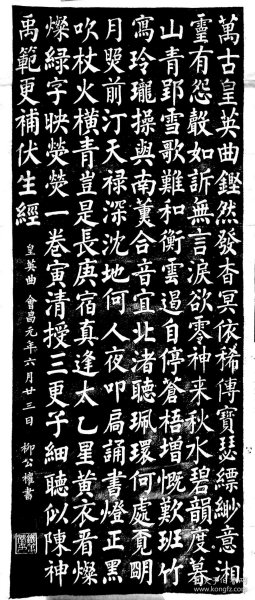 萬古皇英曲鏗然發杳冥依稀傳寶瑟縹緲意湘
靈有怨聲如訴無言淚欲零神来秋水碧韻度暮
山青郢雪歌難和衡雲遏自停蒼梧增慨歎班竹
寫玲瓏操與南薰合音宜北渚聽珮環何處覓眀
月照前汀天禄深沈地何人夜叩扃誦書燈正黑
吹杖火橫青豈是長庚宿真逢太乙星黄衣看燦
燦緑字映熒熒一卷寅清授三更子細聽似陳神
禹範更補伏生經
皇英曲 會昌元年六月廿三日 柳公權書